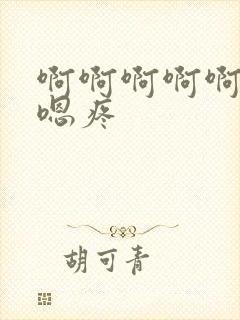 啊啊啊啊啊
嗯疼
胡可青